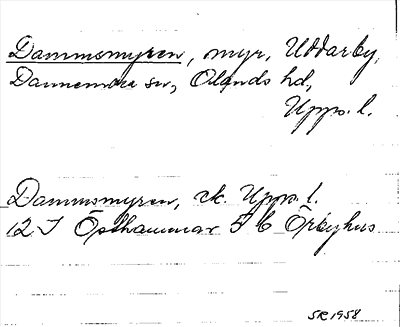 Dammsmyren, myr, Uddarby,
Dannemora sn, Olands hd,
Upps. l.
Dammsmyren, ek. Upps. l.
12 I Östhammar 5 C Örbyhus
SR 1958